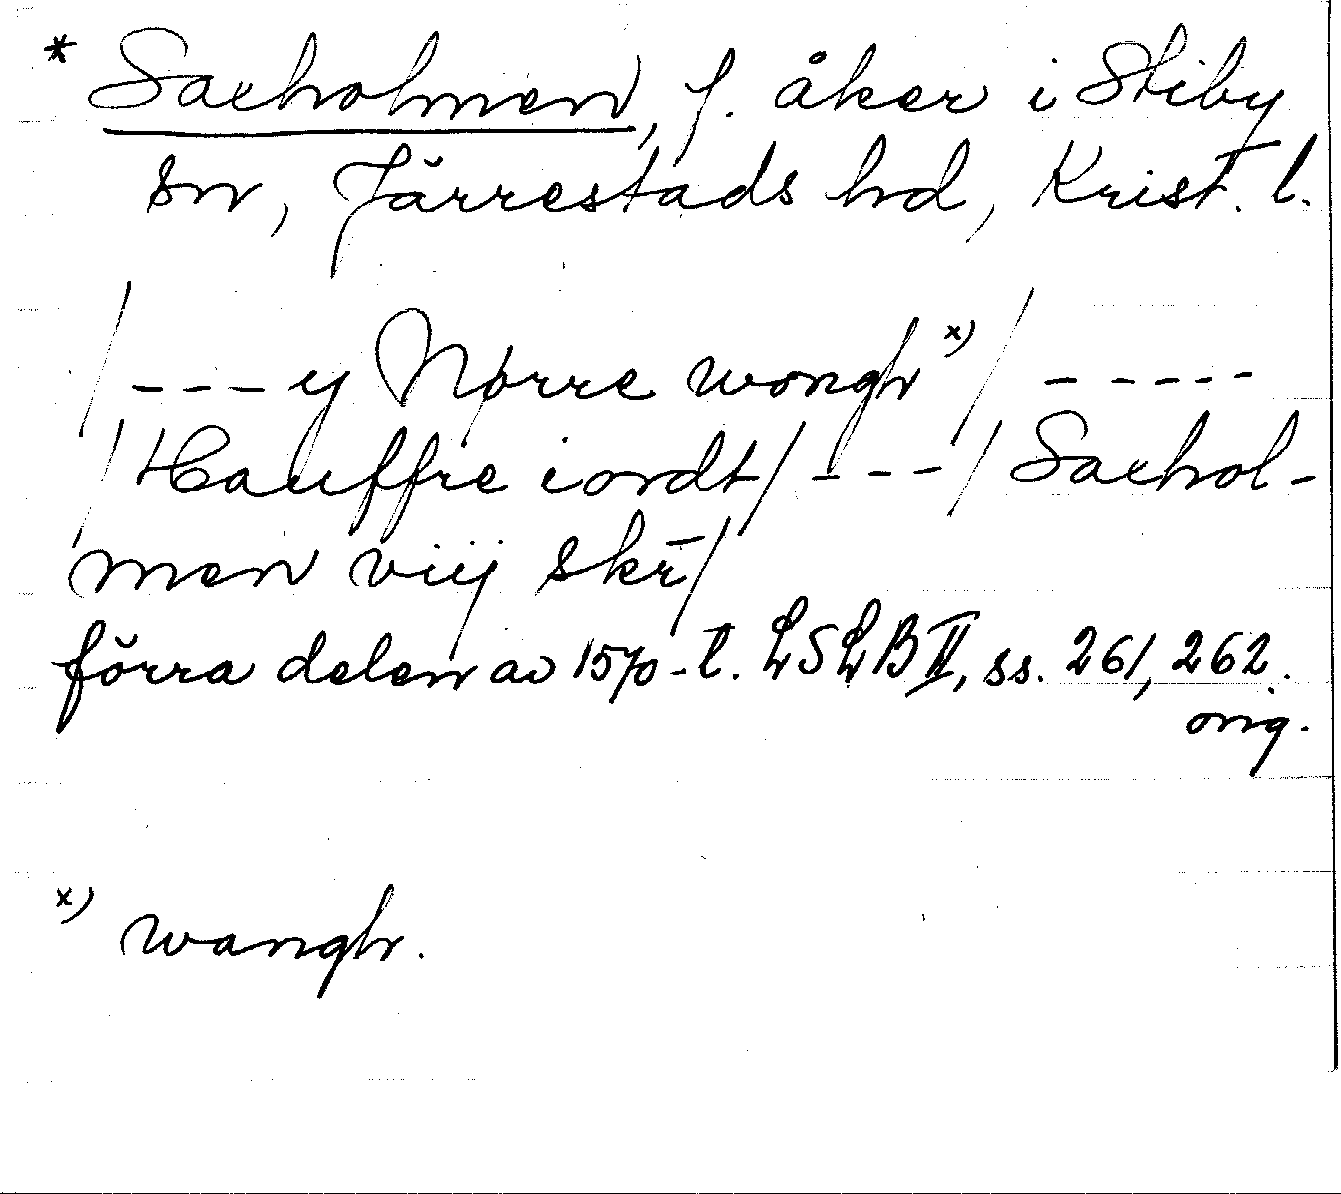 * Saxholmen, f. åker i Stiby
sn, Järrestads hd, Krist. l.
/ - - - y Nørre wongh x) / - - - - -
/ Hauffre iordt / - - - / Saxhol-
men viij skr̄ /
förra delen av 1570-t. LSLB II, ss. 261, 262.
orig.
x) wangh.